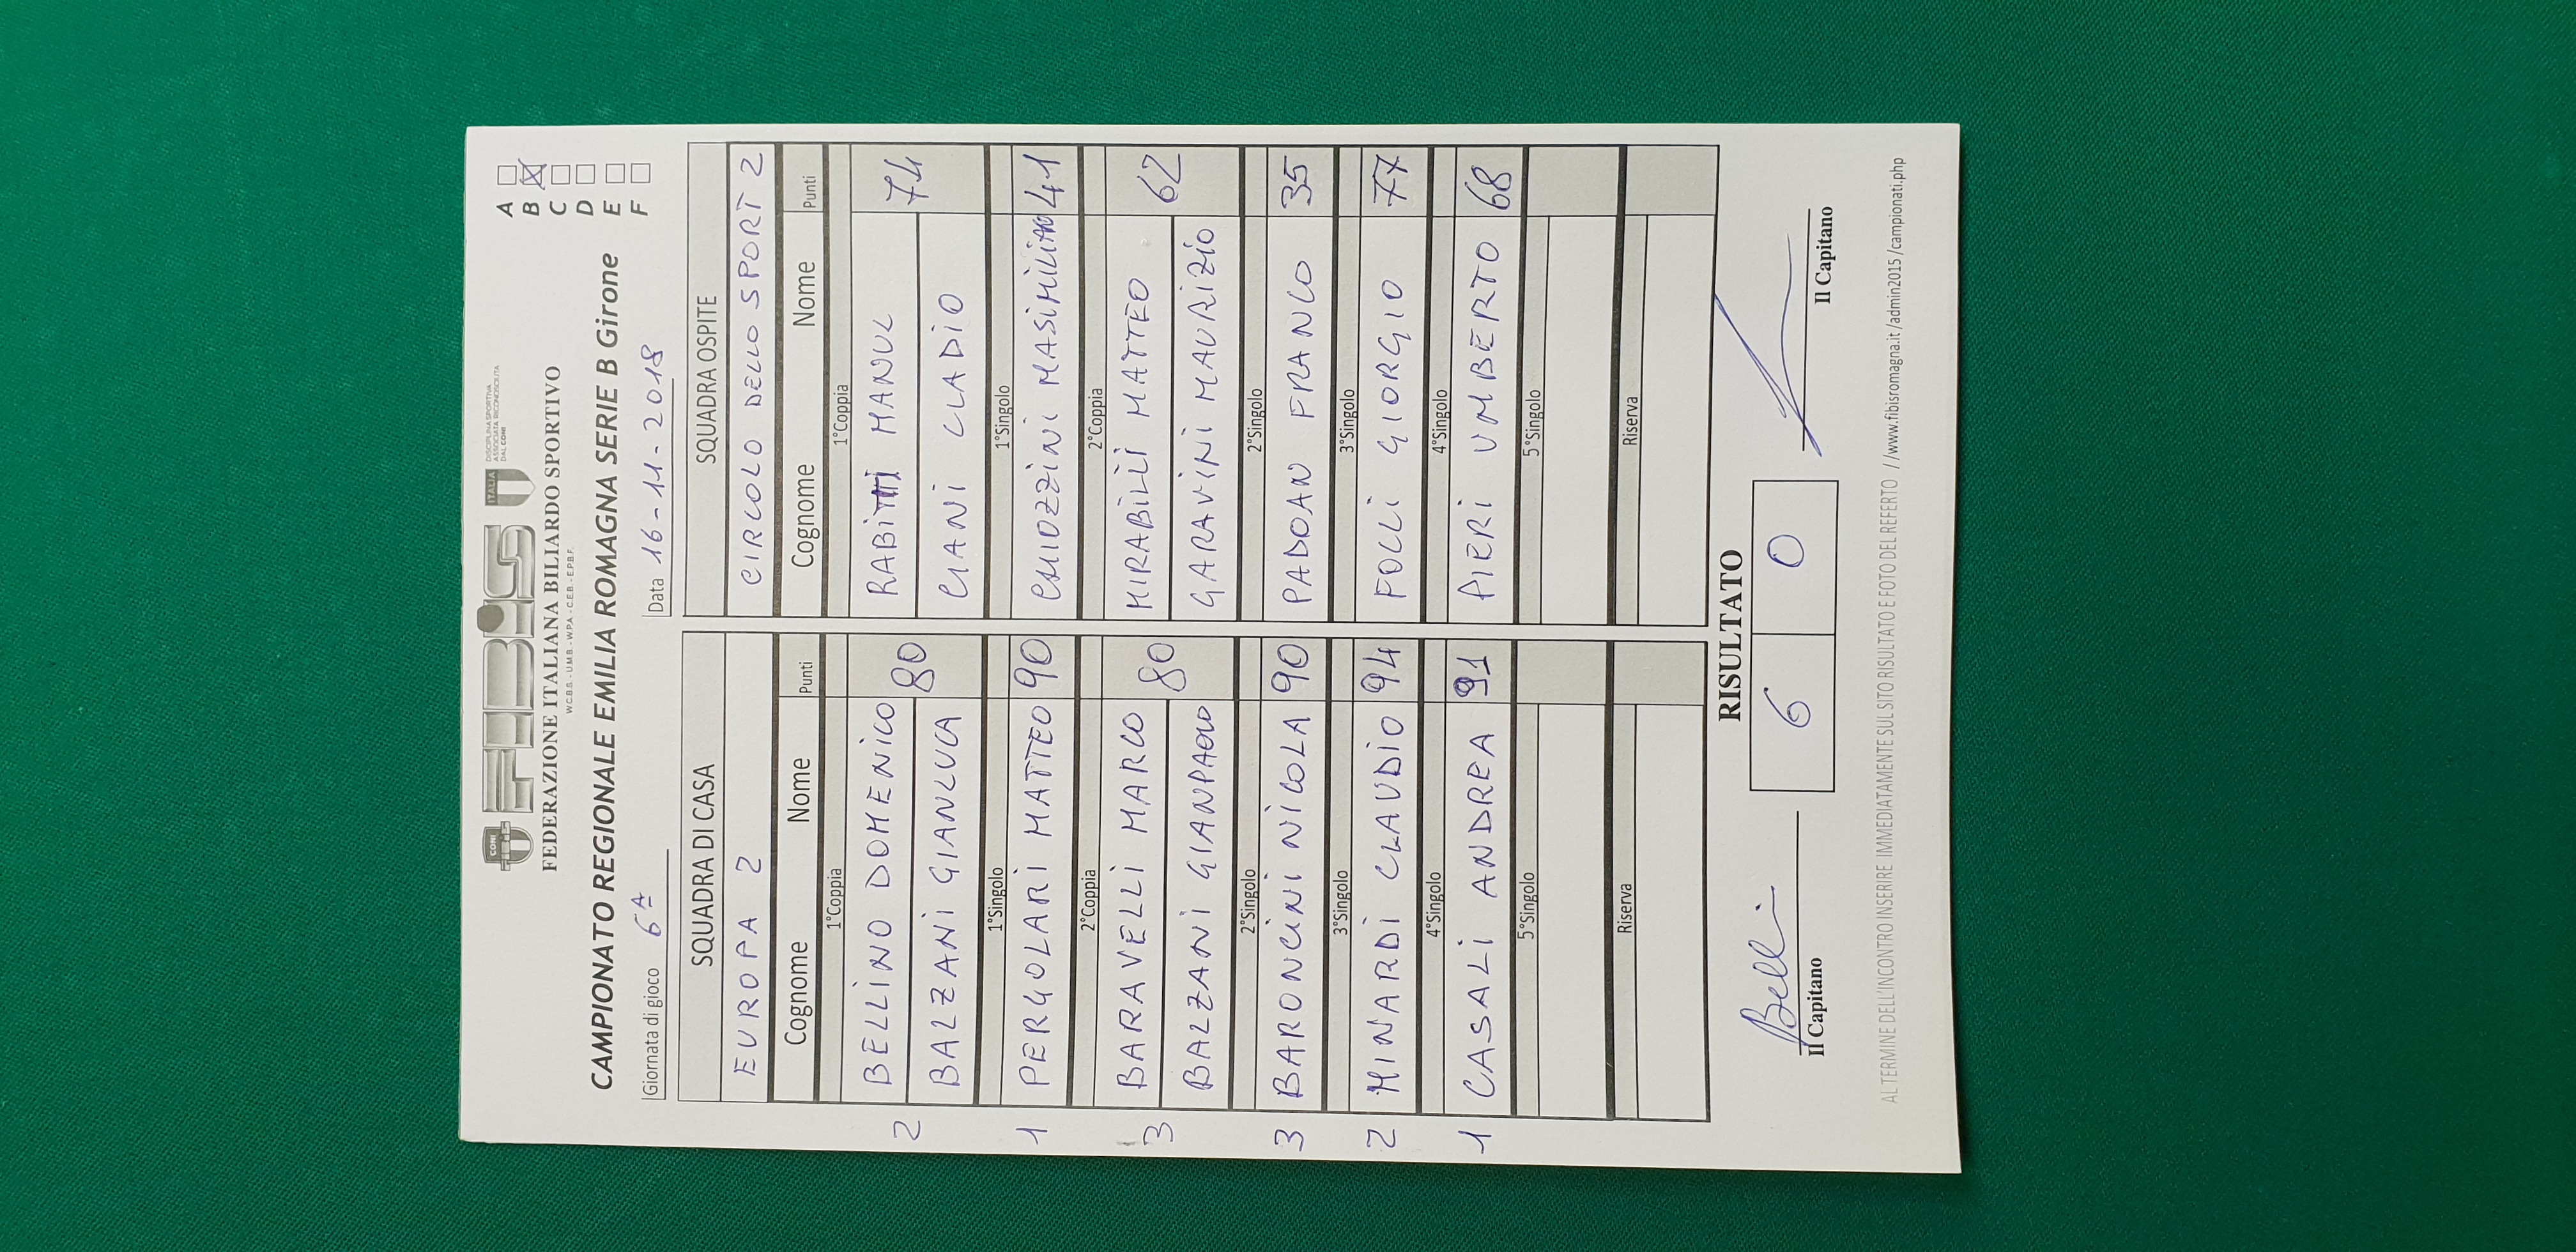 CONI FIBiS ITALIA DISCIPLINA SPORTIVA
ASSOCIATA RICONOSCIUTA
DAL CONI
FEDERAZIONE ITALIANA BILIARDO SPORTIVO
W.C.B.S. - U.M.B. - W.P.A. - C.E.B. - E.P.B.F.
CAMPIONATO REGIONALE EMILIA ROMAGNA SERIE B Girone
A
B
C
D
E
F
Giornata di gioco 6A Data 16-11-2018
SQUADRA DI CASA SQUADRA OSPITE
EUROPA 2 CIRCOLO DELLO SPORT 2
Cognome Nome Punti Cognome Nome Punti
1°Coppia 1°Coppia
2 BELLINO DOMENICO 80 RABITTI MANUL 74
BALZANI GIANLUCA CIANI CLADIO
1°Singolo 1°Singolo
1 PERGOLARI MATTEO 90 CHIOZZINI MASIMILIANO 41
2°Coppia 2°Coppia
3 BARAVELLI MARCO 80 MIRABILI MATTEO 62
BALZANI GIANPAOLO GARAVINI MAURIZIO
2°Singolo 2°Singolo
3 BARONCINI NICOLA 90 PADOAN FRANCO 35
3°Singolo 3°Singolo
2 MINARDI CLAUDIO 94 FOLLI GIORGIO 77
4°Singolo 4°Singolo
1 CASALI ANDREA 91 PIERI UMBERTO 68
5°Singolo 5°Singolo
Riserva Riserva
RISULTATO
6 0
Il Capitano Il Capitano
AL TERMINE DELL'INCONTRO INSERIRE IMMEDIATAMENTE SUL SITO RISULTATO E FOTO DEL REFERTO //www.fibisromagna.it/admin2015/campionati.php